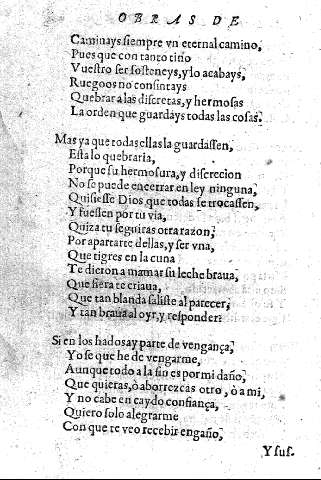 OBRAS DE
Caminays siempre vn eternal camino,
Pues que con tanto tino
Vuestro ser sosteneys, y lo acabays,
Ruegoos no consintays
Quebrar a las discretas, y hermosas
La orden que guardays todas las cosas.
Mas ya que todas ellas la guardassen,
Esta lo quebraria,
Porque su hermosura, y discrecion
No se puede encerrar en ley ninguna,
Quisiesse Dios que todas se trocassen,
Y fuessen por tu via,
Quiza tu seguiras otra razon,
Por apartarte dellas, y ser vna,
Que tigres en la cuna
Te dieron a mamar su leche braua,
Que fiera te criaua,
Que tan blanda saliste al parecer,
Y tan braua al oyr, y responder?
Si en los hados ay parte de vengança,
Yo se que he de vengarme,
Aunque todo a la fin es por mi daño,
Que quieras, ò aborrezcas otro, ò a mi,
Y no cabe en caydo confiança,
Quiero solo alegrarme
Con que te veo recebir engaño,
Y sus.